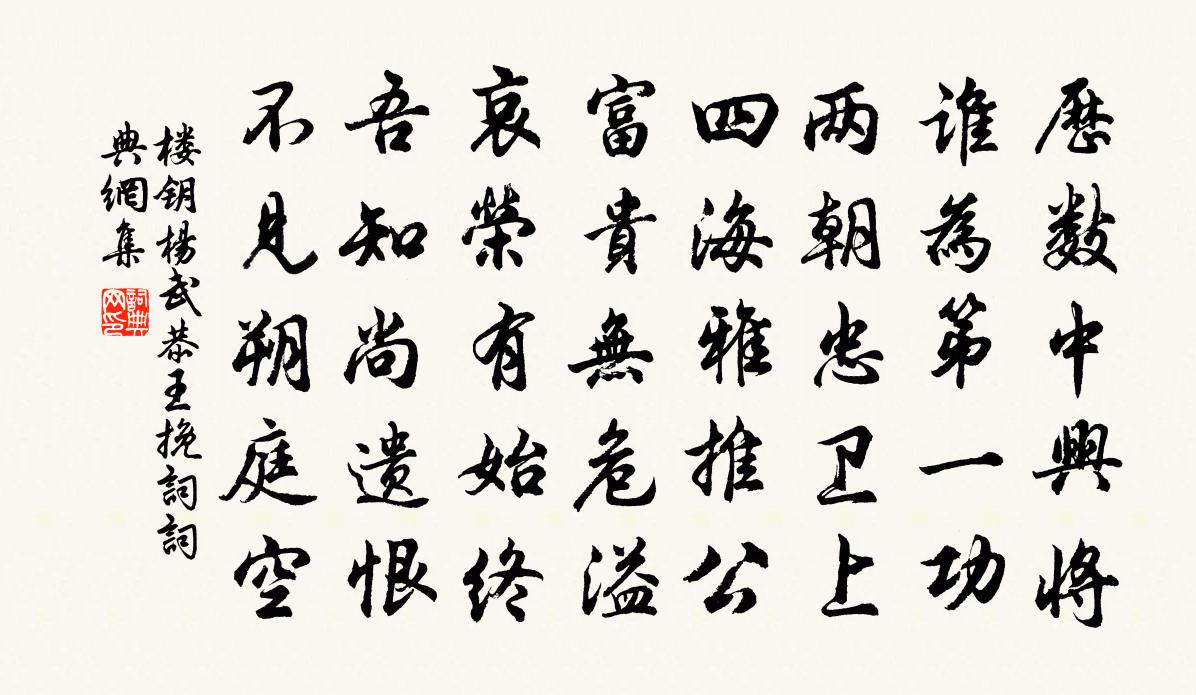 歷数中興將
谁為第一功
两朝忠卫上
四海雅推公
富貴無危溢
哀榮有始终
吾知尚遗恨
不見朔庭空
楼钥楊武恭王挽詞詞
典網集
詞典
网印